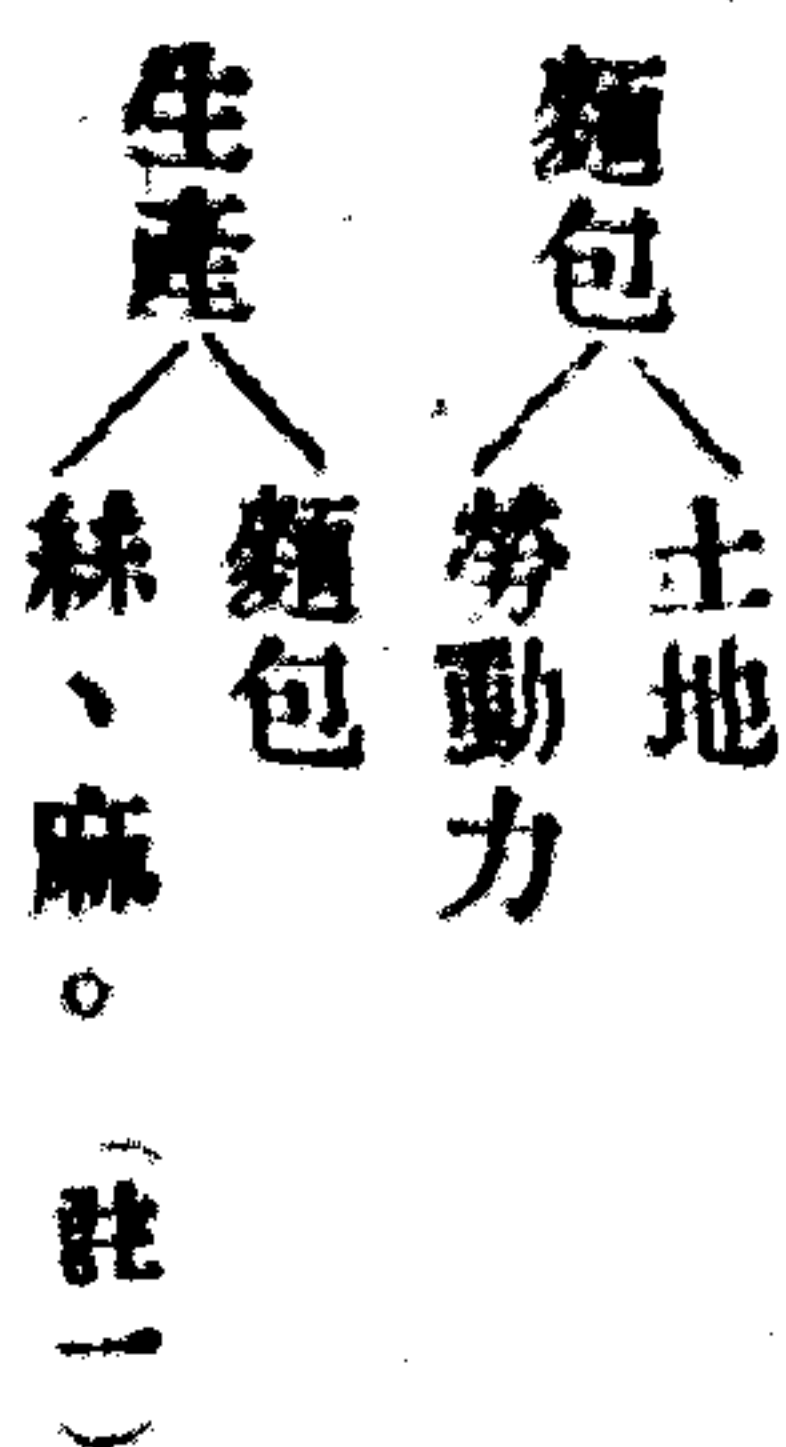 麵包
土地
勞動力
生產
麵包
絲、麻。(註一)